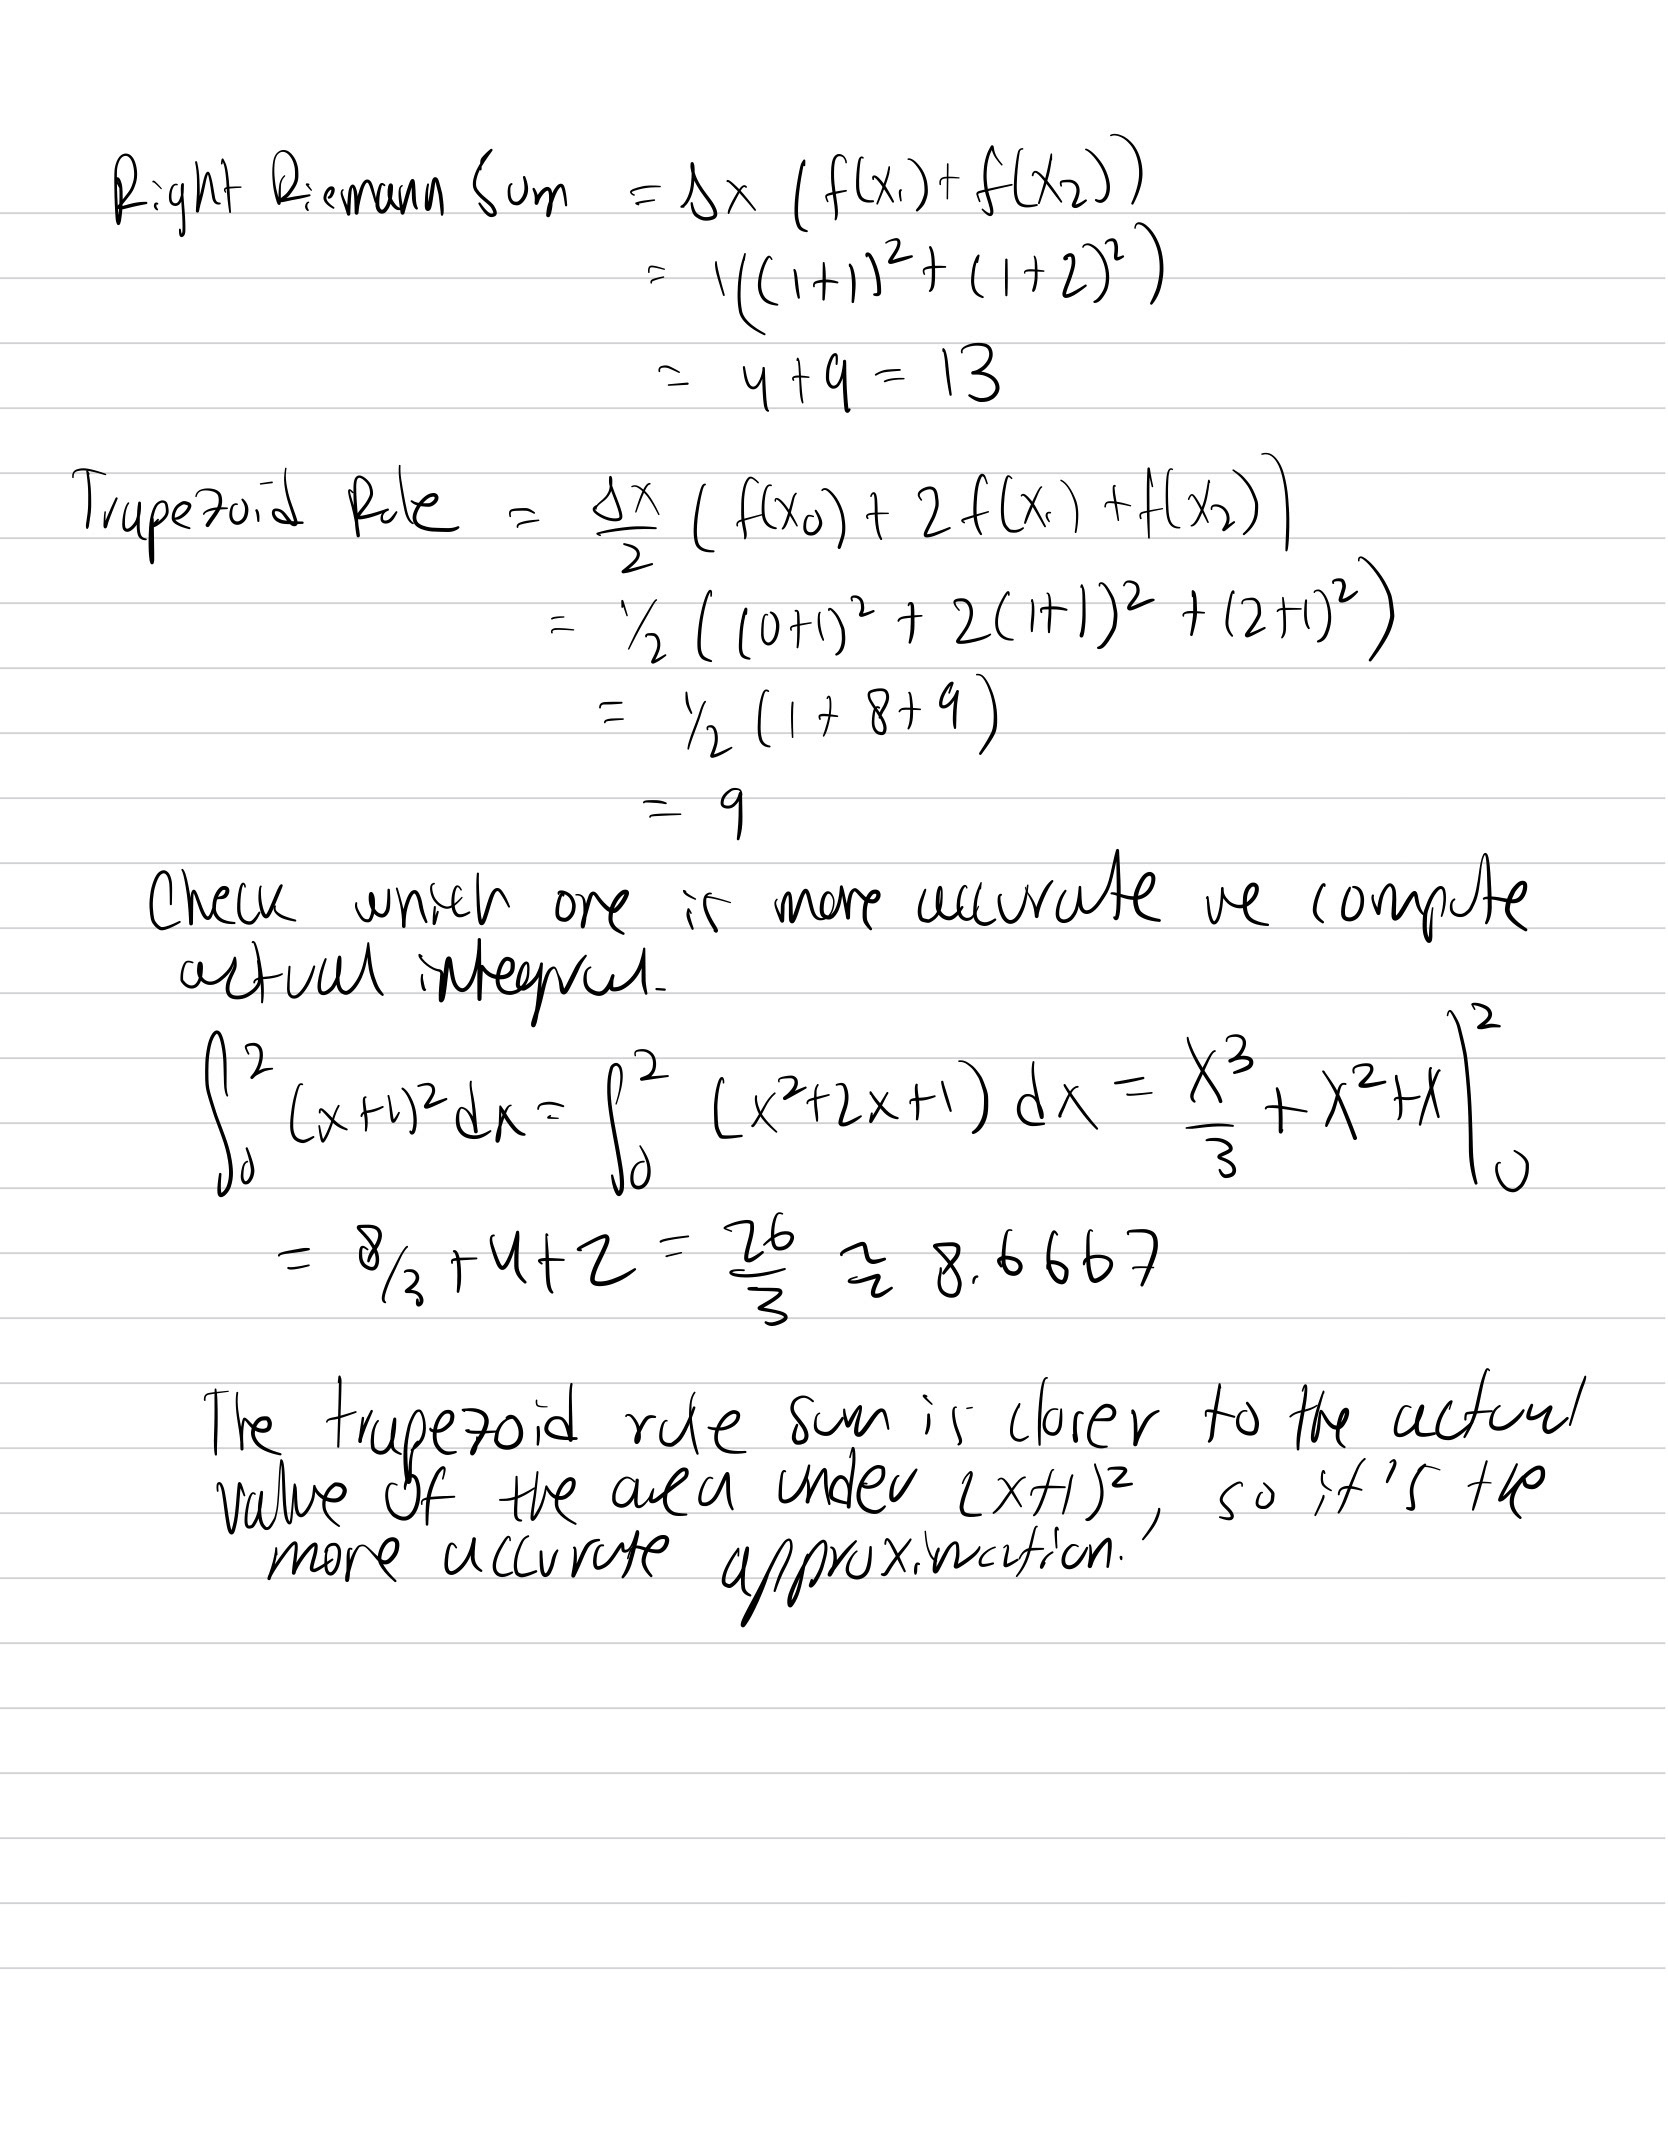 Right Riemann Sum = Δx (f(x₁) + f(x₂))
= 1((1+1)² + (1+2)²)
= 4+9 = 13
Trapezoid Rule = Δx/2 (f(x₀) + 2f(x₁) + f(x₂))
= 1/2 ((0+1)² + 2(1+1)² + (2+1)²)
= 1/2 (1 + 8 + 9)
= 9
Check which one is more accurate we compute
actual integral.
∫₀² (x+1)² dx = ∫₀² (x²+2x+1) dx = x³/3 + x² + x |₀²
= 8/3 + 4 + 2 = 26/3 ≈ 8.6667
The trapezoid rule sum is closer to the actual
value of the area under (x+1)², so it's the
more accurate approximation.